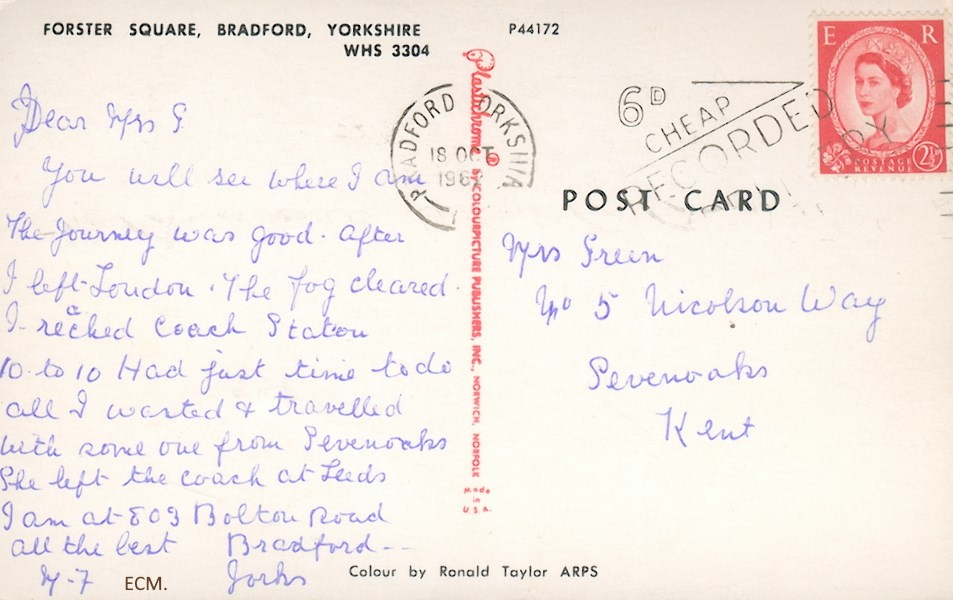 FORSTER SQUARE, BRADFORD, YORKSHIRE
WHS 3304
P44172
Dear Mrs G.
You will see where I am
The Journey was good. after
I left London. The fog cleared.
I reached Coach Station
10. to 10 Had just time to do
all I wanted & travelled
with some one from Sevenoaks
She left the coach at Leeds
I am at 803 Bolton Road
all the best Bradford--
Yorks
ECM.
Plastichrome ® BY COLOURPICTURE PUBLISHERS, INC., NORWICH, NORFOLK
Made
in
U.S.A.
BRADFORD YORKSHIRE
18 OCT
6D
CHEAP
RECORDED
E R
POSTAGE
REVENUE
2½D
POST CARD
Mrs Green
No 5 Nicolson Way
Sevenoaks
Kent
Colour by Ronald Taylor ARPS